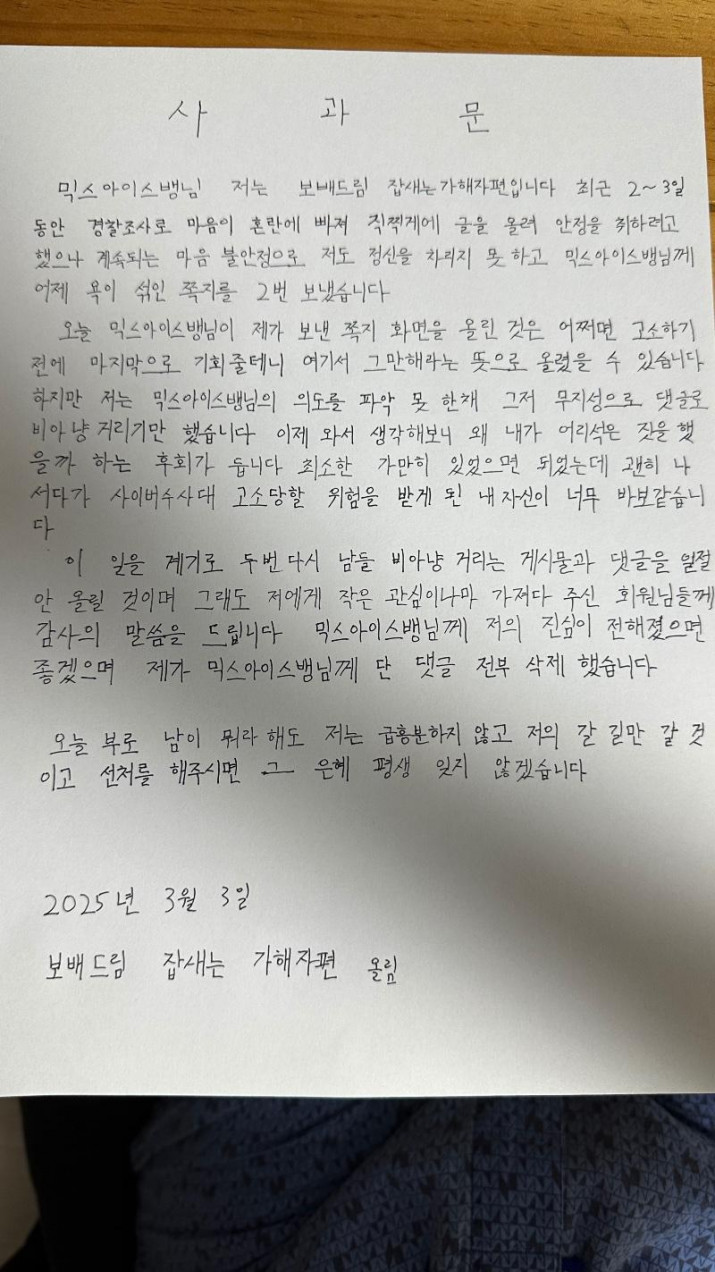 사 과 문
믹스아이스뱅님 저는 보배드림 잡새는가해자편입니다 최근 2~3일
동안 경찰조사로 마음이 혼란에 빠져 직찍게에 글을 올려 안정을 취하려고
했으나 계속되는 마음 불안정으로 저도 정신을 차리지 못 하고 믹스아이스뱅님께
어제 욕이 섞인 쪽지를 2번 보냈습니다
오늘 믹스아이스뱅님이 제가 보낸 쪽지 화면을 올린 것은 어쩌면 고소하기
전에 마지막으로 기회줄테니 여기서 그만해라는 뜻으로 올렸을 수 있습니다
하지만 저는 믹스아이스뱅님의 의도를 파악 못 한채 그저 무지성으로 댓글로
비아냥거리기만 했습니다 이제 와서 생각해보니 왜 내가 어리석은 짓을 했
을까 하는 후회가 듭니다 최소한 가만히 있었으면 되었는데 괜히 나
서다가 사이버수사대 고소당할 위험을 받게 된 내자신이 너무 바보같습니
다
이 일을 계기로 두번다시 남들 비아냥 거리는 게시물과 댓글을 일절
안 올릴 것이며 그래도 저에게 작은 관심이나마 가져다 주신 회원님들께
감사의 말씀을 드립니다 믹스아이스뱅님께 저의 진심이 전해졌으면
좋겠으며 제가 믹스아이스뱅님께 단 댓글 전부 삭제 했습니다
오늘 부로 남이 뭐라 해도 저는 급흥분하지 않고 저의 갈 길만 갈 것
이고 선처를 해주시면 그 은혜 평생 잊지 않겠습니다
2025년 3월 3일
보배드림 잡새는 가해자편 올림